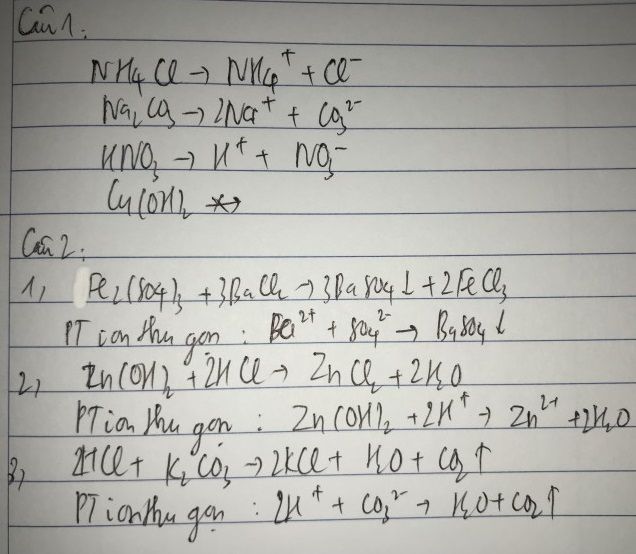 Câu 1:
NH₄Cl → NH₄⁺ + Cl⁻
Na₂CO₃ → 2Na⁺ + CO₃²⁻
HNO₃ → H⁺ + NO₃⁻
Cu(OH)₂ ↛
Câu 2:
1, Fe₂(SO₄)₃ + 3BaCl₂ → 3BaSO₄↓ + 2FeCl₃
PT ion thu gọn : Ba²⁺ + SO₄²⁻ → BaSO₄↓
2, Zn(OH)₂ + 2HCl → ZnCl₂ + 2H₂O
PT ion thu gọn : Zn(OH)₂ + 2H⁺ → Zn²⁺ + 2H₂O
3, 2HCl + K₂CO₃ → 2KCl + H₂O + CO₂↑
PT ion thu gọn : 2H⁺ + CO₃²⁻ → H₂O + CO₂↑